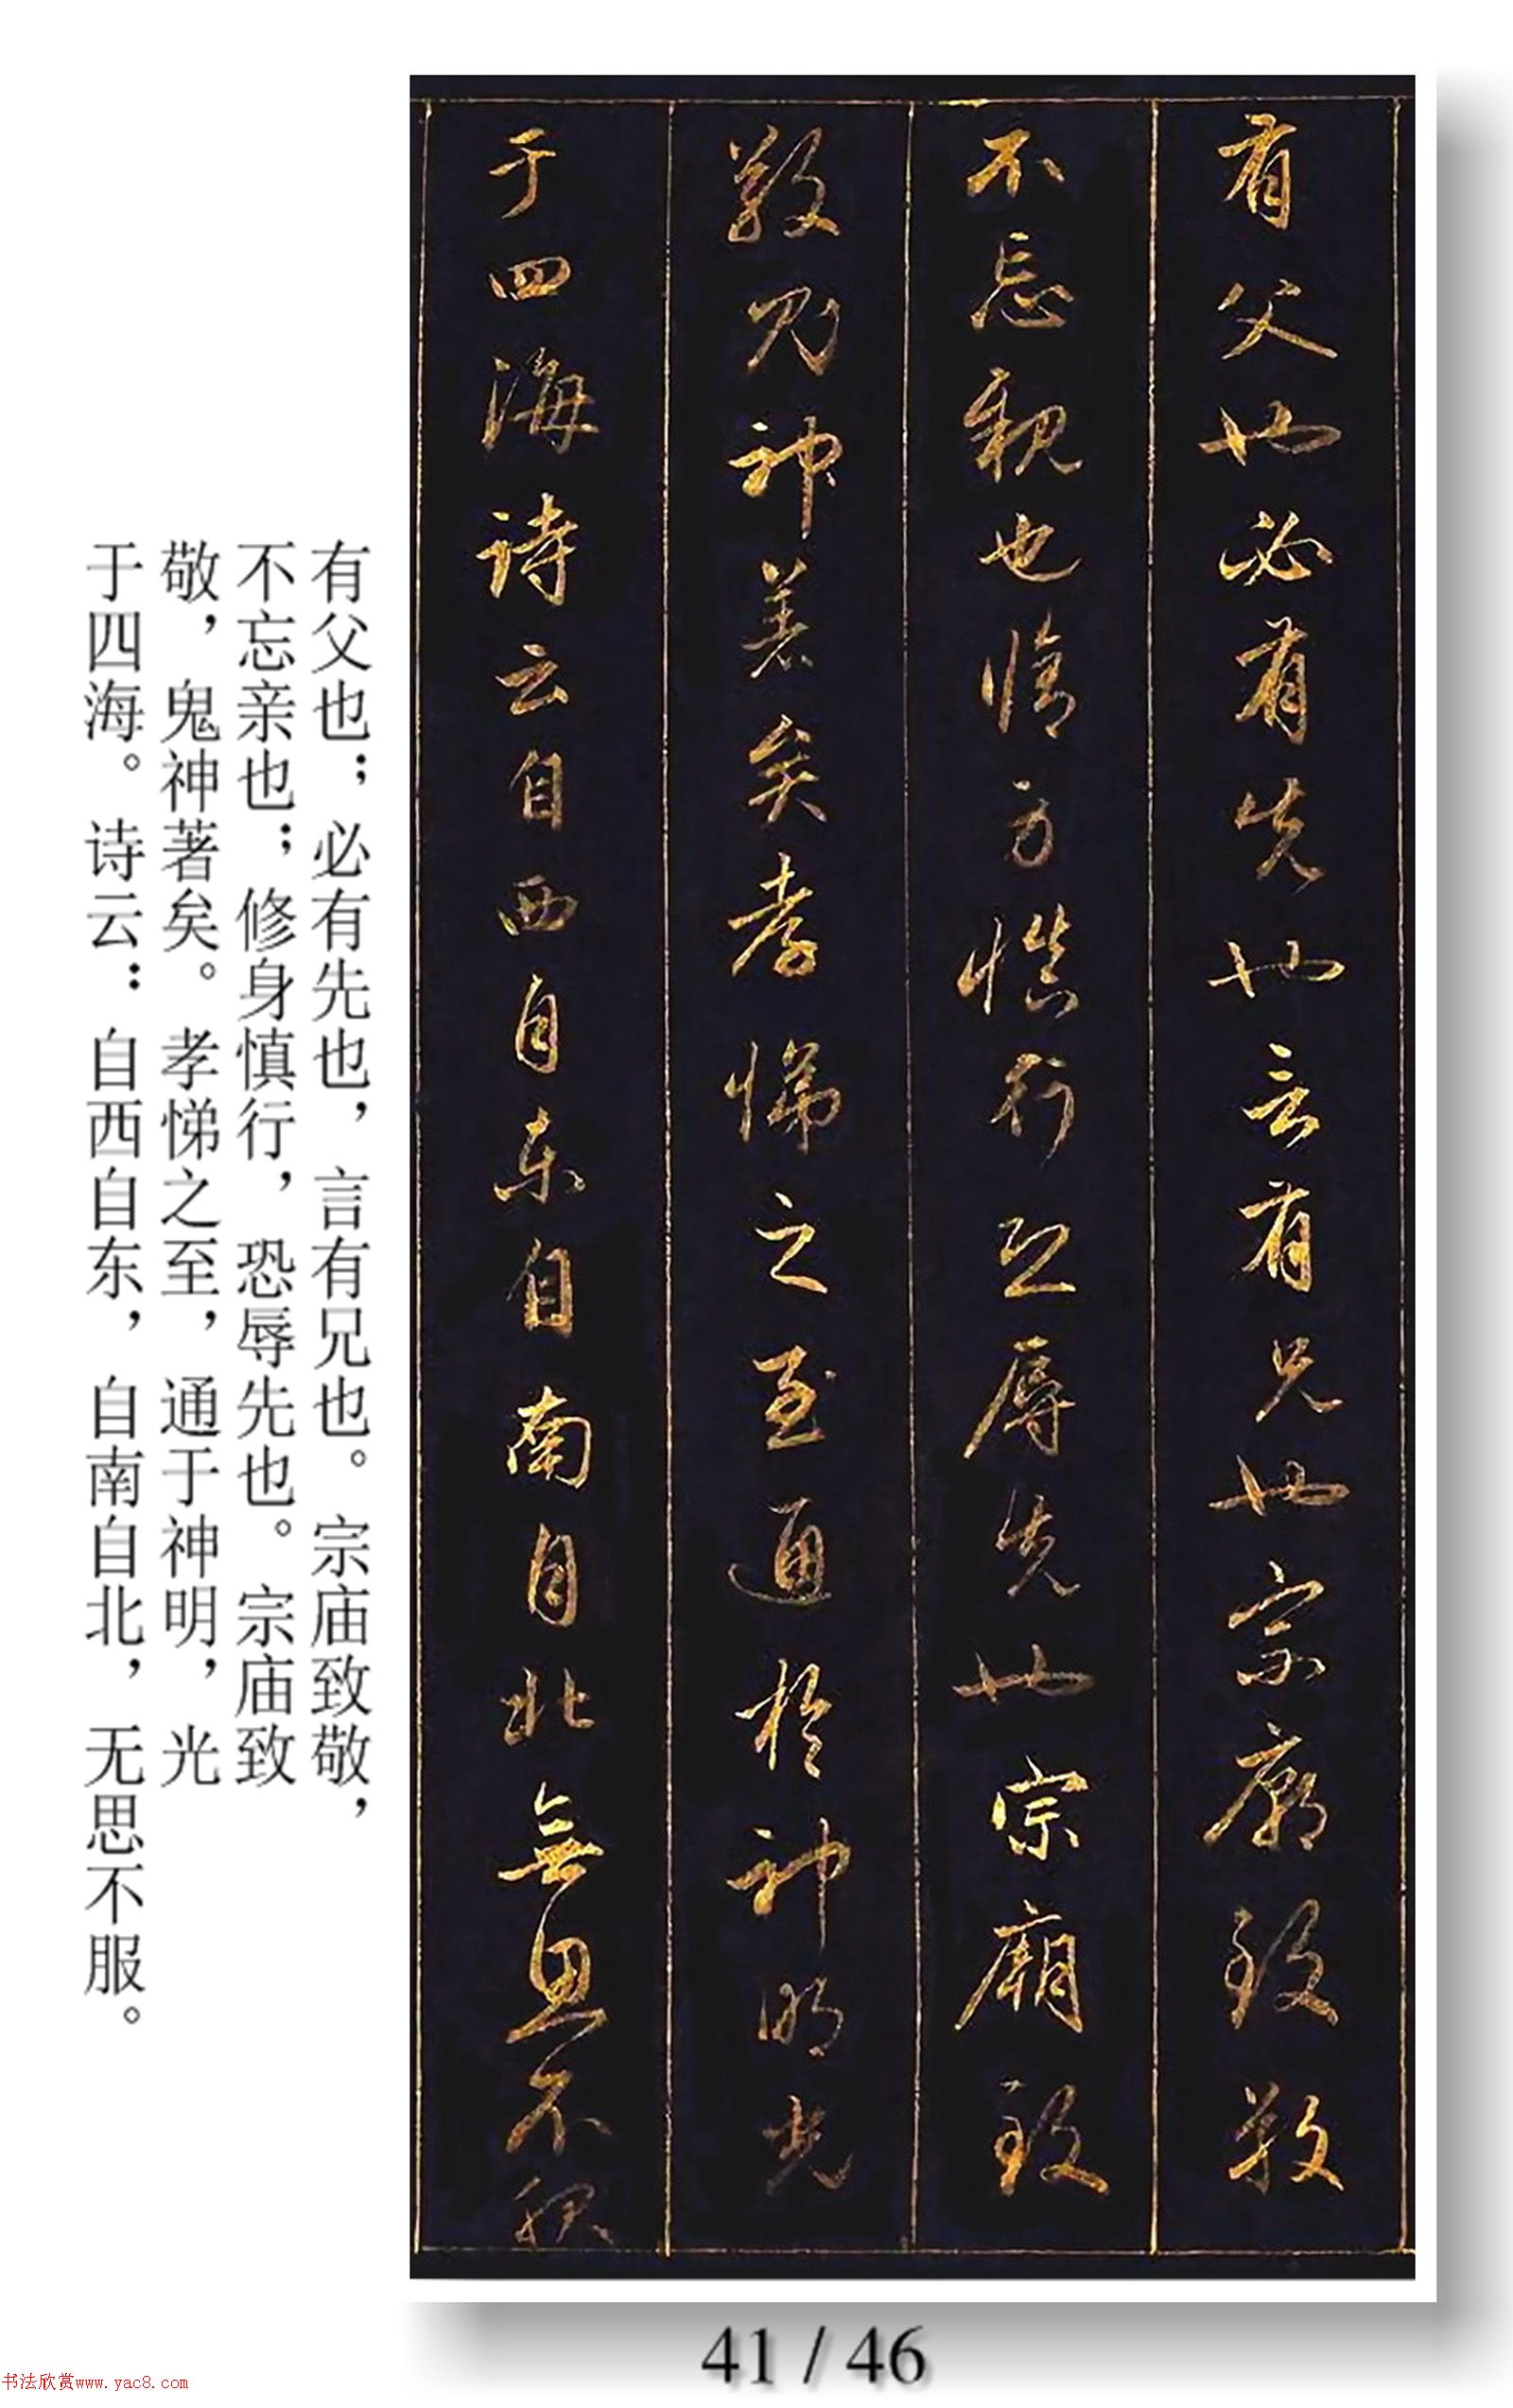 有父也必有先也言有兄也宗廟致敬
不忘親也脩身慎行恐辱先也宗廟致
敬鬼神著矣孝悌之至通於神明光
于四海詩云自西自东自南自北無思不服
有父也；必有先也，言有兄也。宗庙致敬，
不忘亲也；修身慎行，恐辱先也。宗庙致
敬，鬼神著矣。孝悌之至，通于神明，光
于四海。诗云：自西自东，自南自北，无思不服。
41 / 46
书法欣赏www.yac8.com